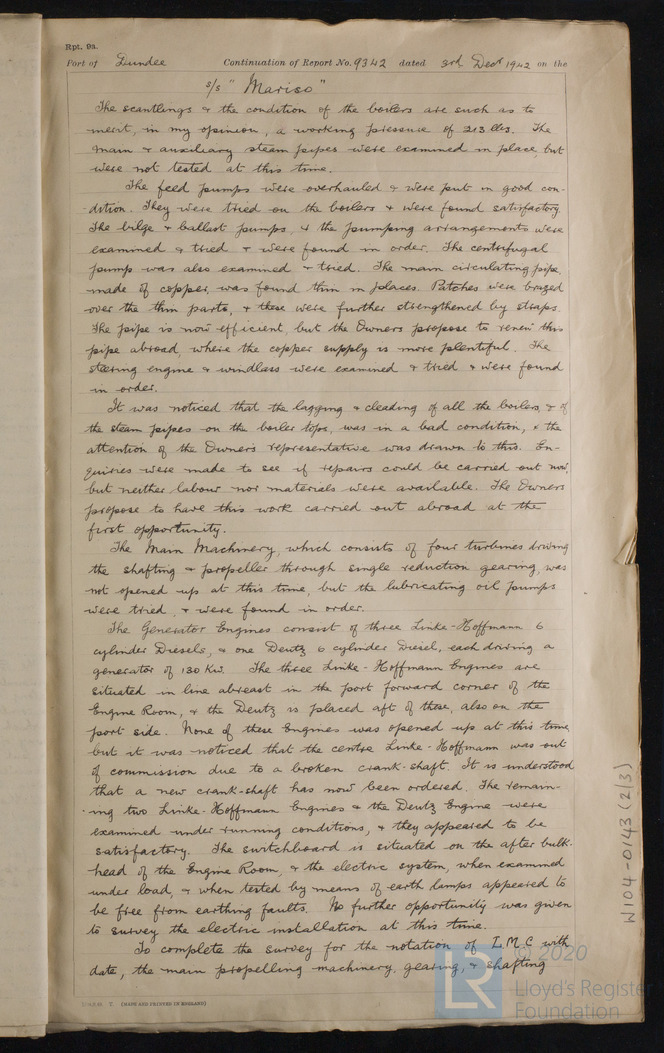 Rpt. 9a.
Port of Dundee Continuation of Report No. 9342 dated 3rd Dec 1942 on the
s/s "Mariso"
The scantlings & the condition of the boilers are such as to
merit, in my opinion, a working pressure of 213 lbs. The
main & auxiliary steam pipes were examined in place, but
were not tested at this time.
The feed pumps were overhauled & were put in good con-
-dition. They were tried on the boilers & were found satisfactory
The bilge & ballast pumps, & the pumping arrangements were
examined & tried & were found in order. The centrifugal
pump was also examined & tried. The main circulating pipe,
made of copper, was found thin in places. Patches were brazed
over the thin parts, & these were further strengthened by straps.
The pipe is now efficient, but the Owners propose to renew this
pipe abroad, where the copper supply is more plentiful. The
steering engine & windlass were examined & tried & were found
in order.
It was noticed that the lagging & cleading of all the boilers, & of
the steam pipes on the boiler tops, was in a bad condition, & the
attention of the Owner's representative was drawn to this. En-
quiries were made to see if repairs could be carried out now,
but neither labour nor materials were available. The Owners
propose to have this work carried out abroad at the
first opportunity.
The Main Machinery, which consists of four turbines driving
the shafting & propeller through single reduction gearing, was
not opened up at this time, but the lubricating oil pumps
were tried, & were found in order.
The Generator Engines consist of three Linke-Hoffmann 6
cylinder Diesels, & one Deutz 6 cylinder Diesel, each driving a
generator of 130 Kw. The three Linke-Hoffmann Engines are
situated in line abreast in the port forward corner of the
Engine Room, & the Deutz is placed aft of these, also on the
port side. None of these Engines was opened up at this time,
but it was noticed that the centre Linke-Hoffmann was out
of commission due to a broken crank-shaft. It is understood
that a new crank-shaft has now been ordered. The remain-
-ing two Linke-Hoffmann Engines & the Deutz Engine were
examined under running conditions, & they appeared to be
satisfactory. The switchboard is situated on the after bulk-
head of the Engine Room, & the electric system, when examined
under load, & when tested by means of earth lamps appeared to
be free from earthing faults. No further opportunity was given
to survey the electric installation at this time.
To complete the survey for the notation of L.M.C with
date, the main propelling machinery, gearing, & shafting
(MADE AND PRINTED IN ENGLAND)
W104-0143 (2/3)
© 2020
LR
Lloyd's Register
Foundation